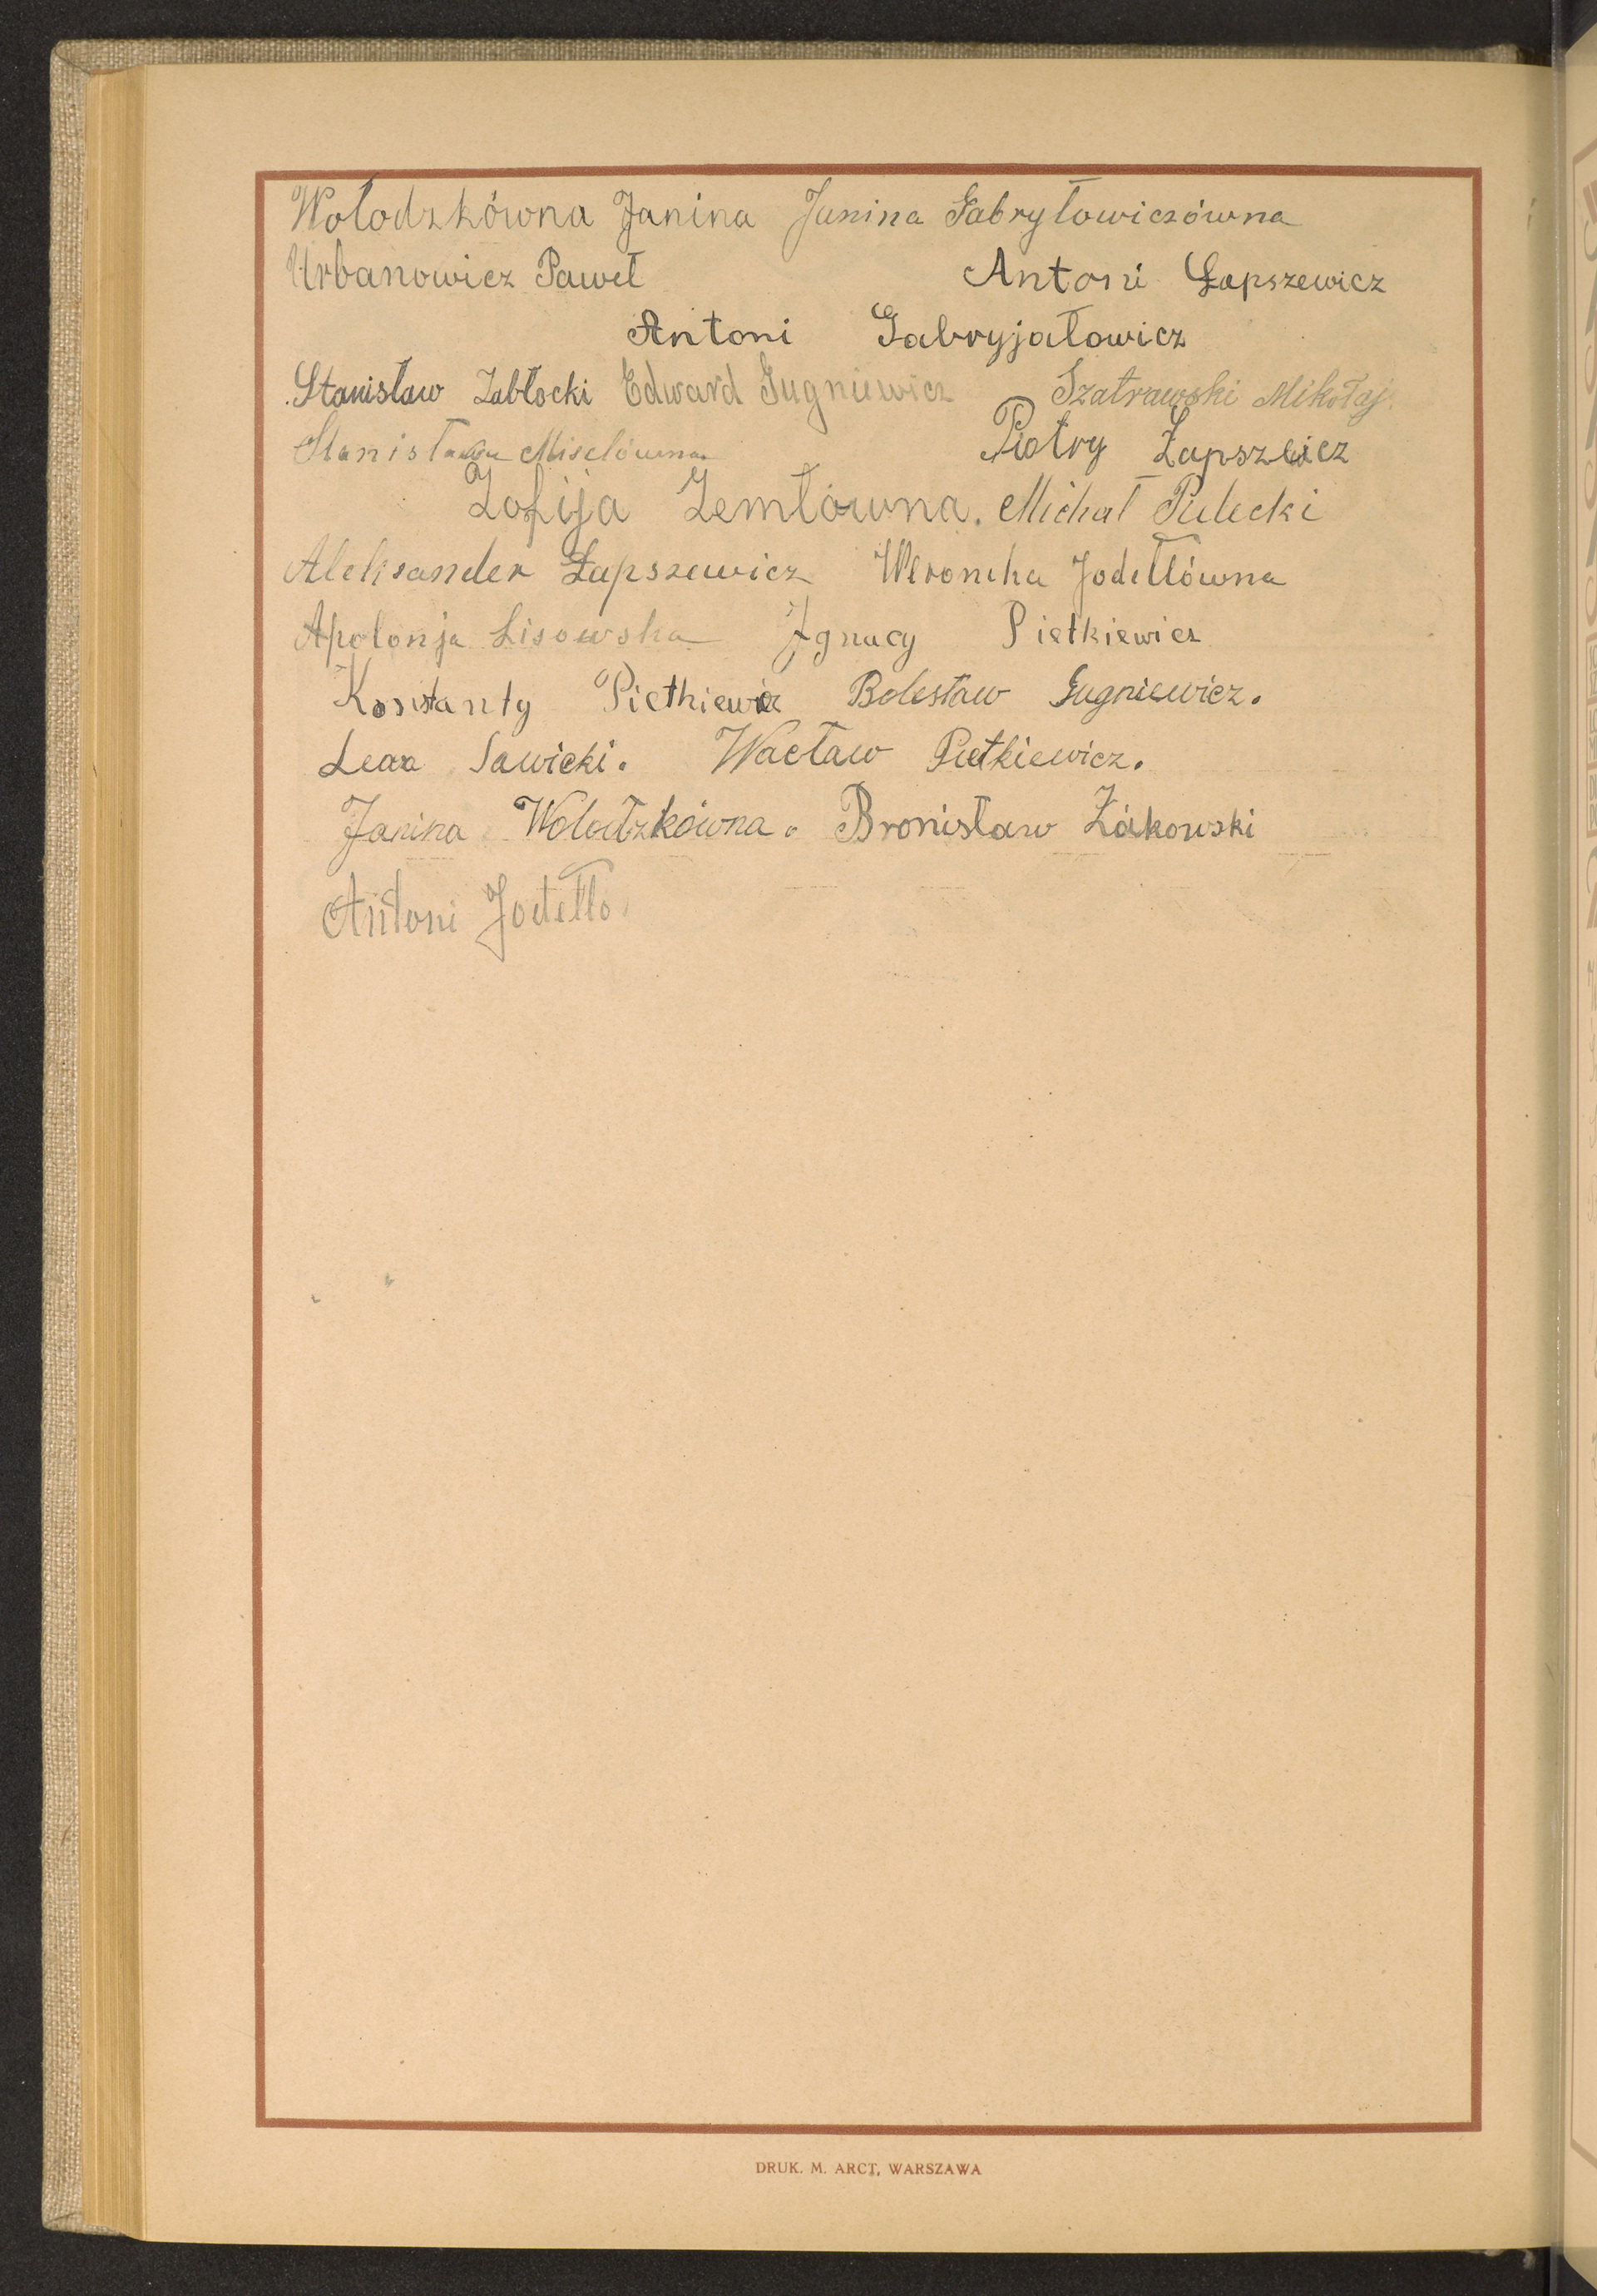 Wołodzkówna Janina Janina Gabryłowiczówna
Urbanowicz Paweł Antoni Łapszewicz
Antoni Gabryjałowicz
Stanisław Zabłocki Edward Gugniewicz Szatrawski Mikołaj.
Stanisława Misclówna Piotry Łapszewicz
Zofija Zemłówna. Michał Pulecki
Aleksander Łapszewicz Weronika Jodełłówna
Apolonja Lisowska Ignacy Pietkiewicz
Konstanty Pietkiewicz Bolesław Gugniewicz.
Sawicki. Wacław Pietkiewicz.
Janina Wołodzkówna. Bronisław Żakowski
Antoni Jodełło
DRUK. M. ARCT, WARSZAWA